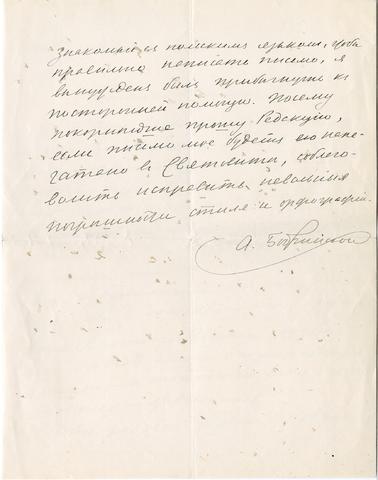 знакомый съ польскимъ языкомъ, чтобы
правильно написать письмо, я
вынужденъ былъ прибѣгнуть къ
посторонней помощи. Посему
покорнѣйше прошу Редакцію,
если письмо мое будетъ ею напе-
чатано въ Святовитъ, соблаго-
волить исправить невольныя
погрѣшности стиля и орѳографіи.
А.